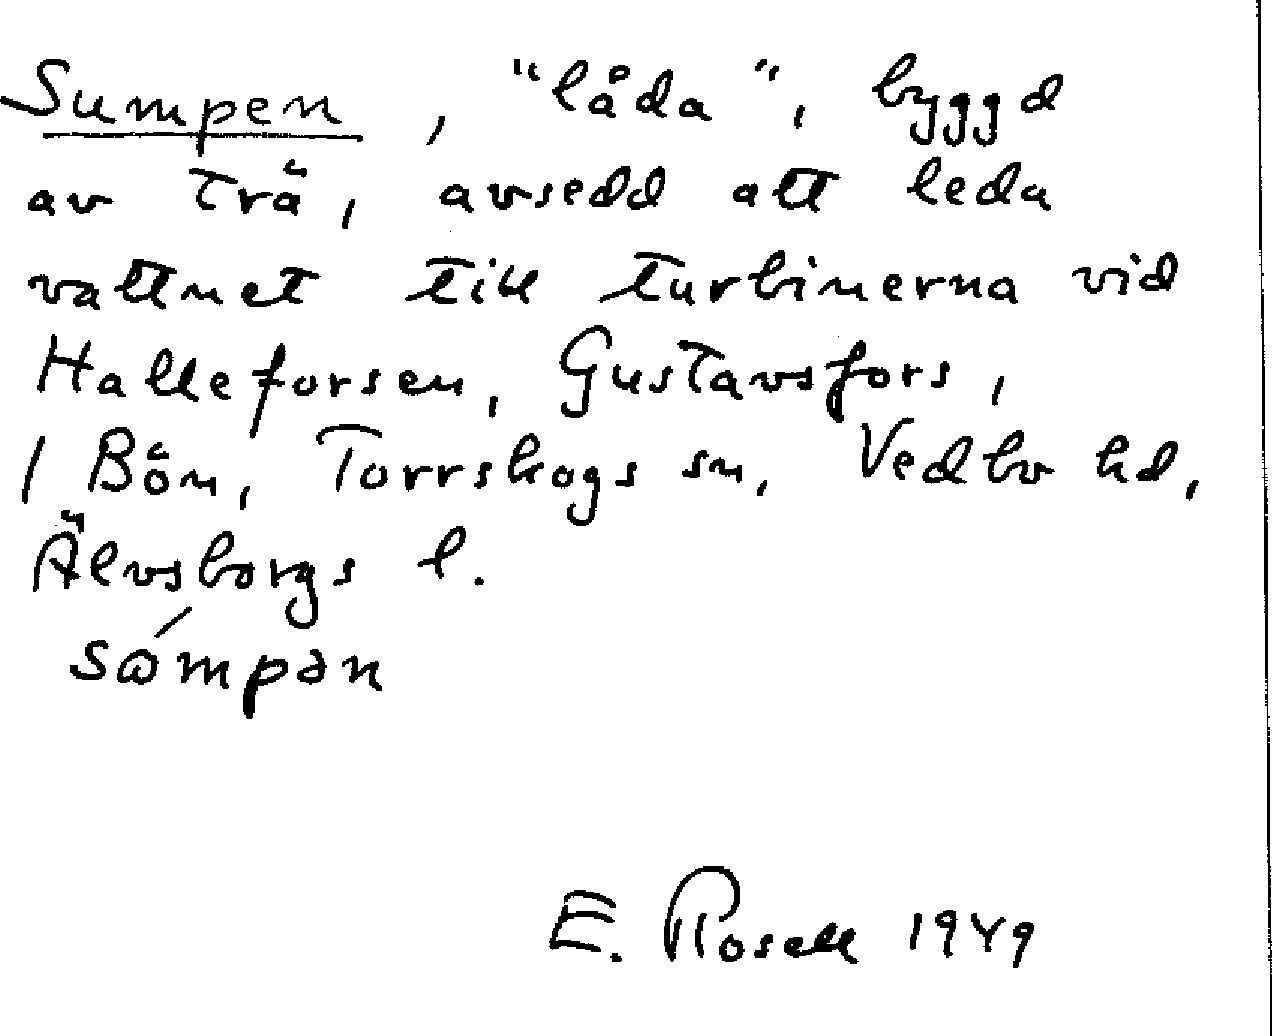 Sumpen, "låda", byggd
av trä, avsedd att leda
vattnet till turbinerna vid
Halleforsen, Gustavsfors,
1 Bön, Torrskogs sn, Vedbo hd,
Älvsborgs l.
sɷ́mpən
E. Rosell 1949